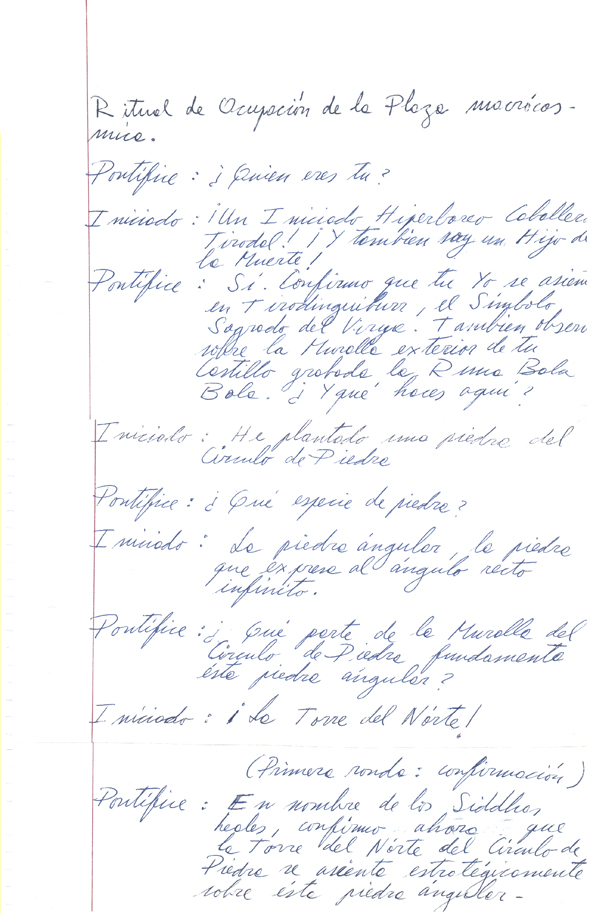 Ritual de Ocupación de la Plaza macrócos-
mica.
Pontífice: ¿Quien eres tu?
Iniciado: ¡Un Iniciado Hiperboreo Caballer
Tirodal! ¡Y tambien soy un Hijo de
la Muerte!
Pontífice: Si. Confirmo que tu Yo se asien
en Tirodinguiburr, el Simbolo
Sagrado del Virya. Tambien obser
sobre la Muralla exterior de tu
Castillo grabada la Runa Bala
Bala. ¿Y qué haces aquí?
Iniciado: He plantado una piedra del
Círculo de Piedra
Pontífice: ¿Qué especie de piedra?
Iniciado: La piedra ángular, la piedra
que expresa al ángulo recto
infinito.
Pontífice: ¿Qué parte de la Muralla del
Círculo de Piedra fundamenta
ésta piedra ángular?
Iniciado: ¡La Torre del Nórte!
(Primera ronda: confirmación)
Pontífice: En nombre de los Siddhas
leales, confirmo ahora que
la Torre del Nórte del Círculo de
Piedra se asienta estratégicamente
sobre ésta piedra ángular-